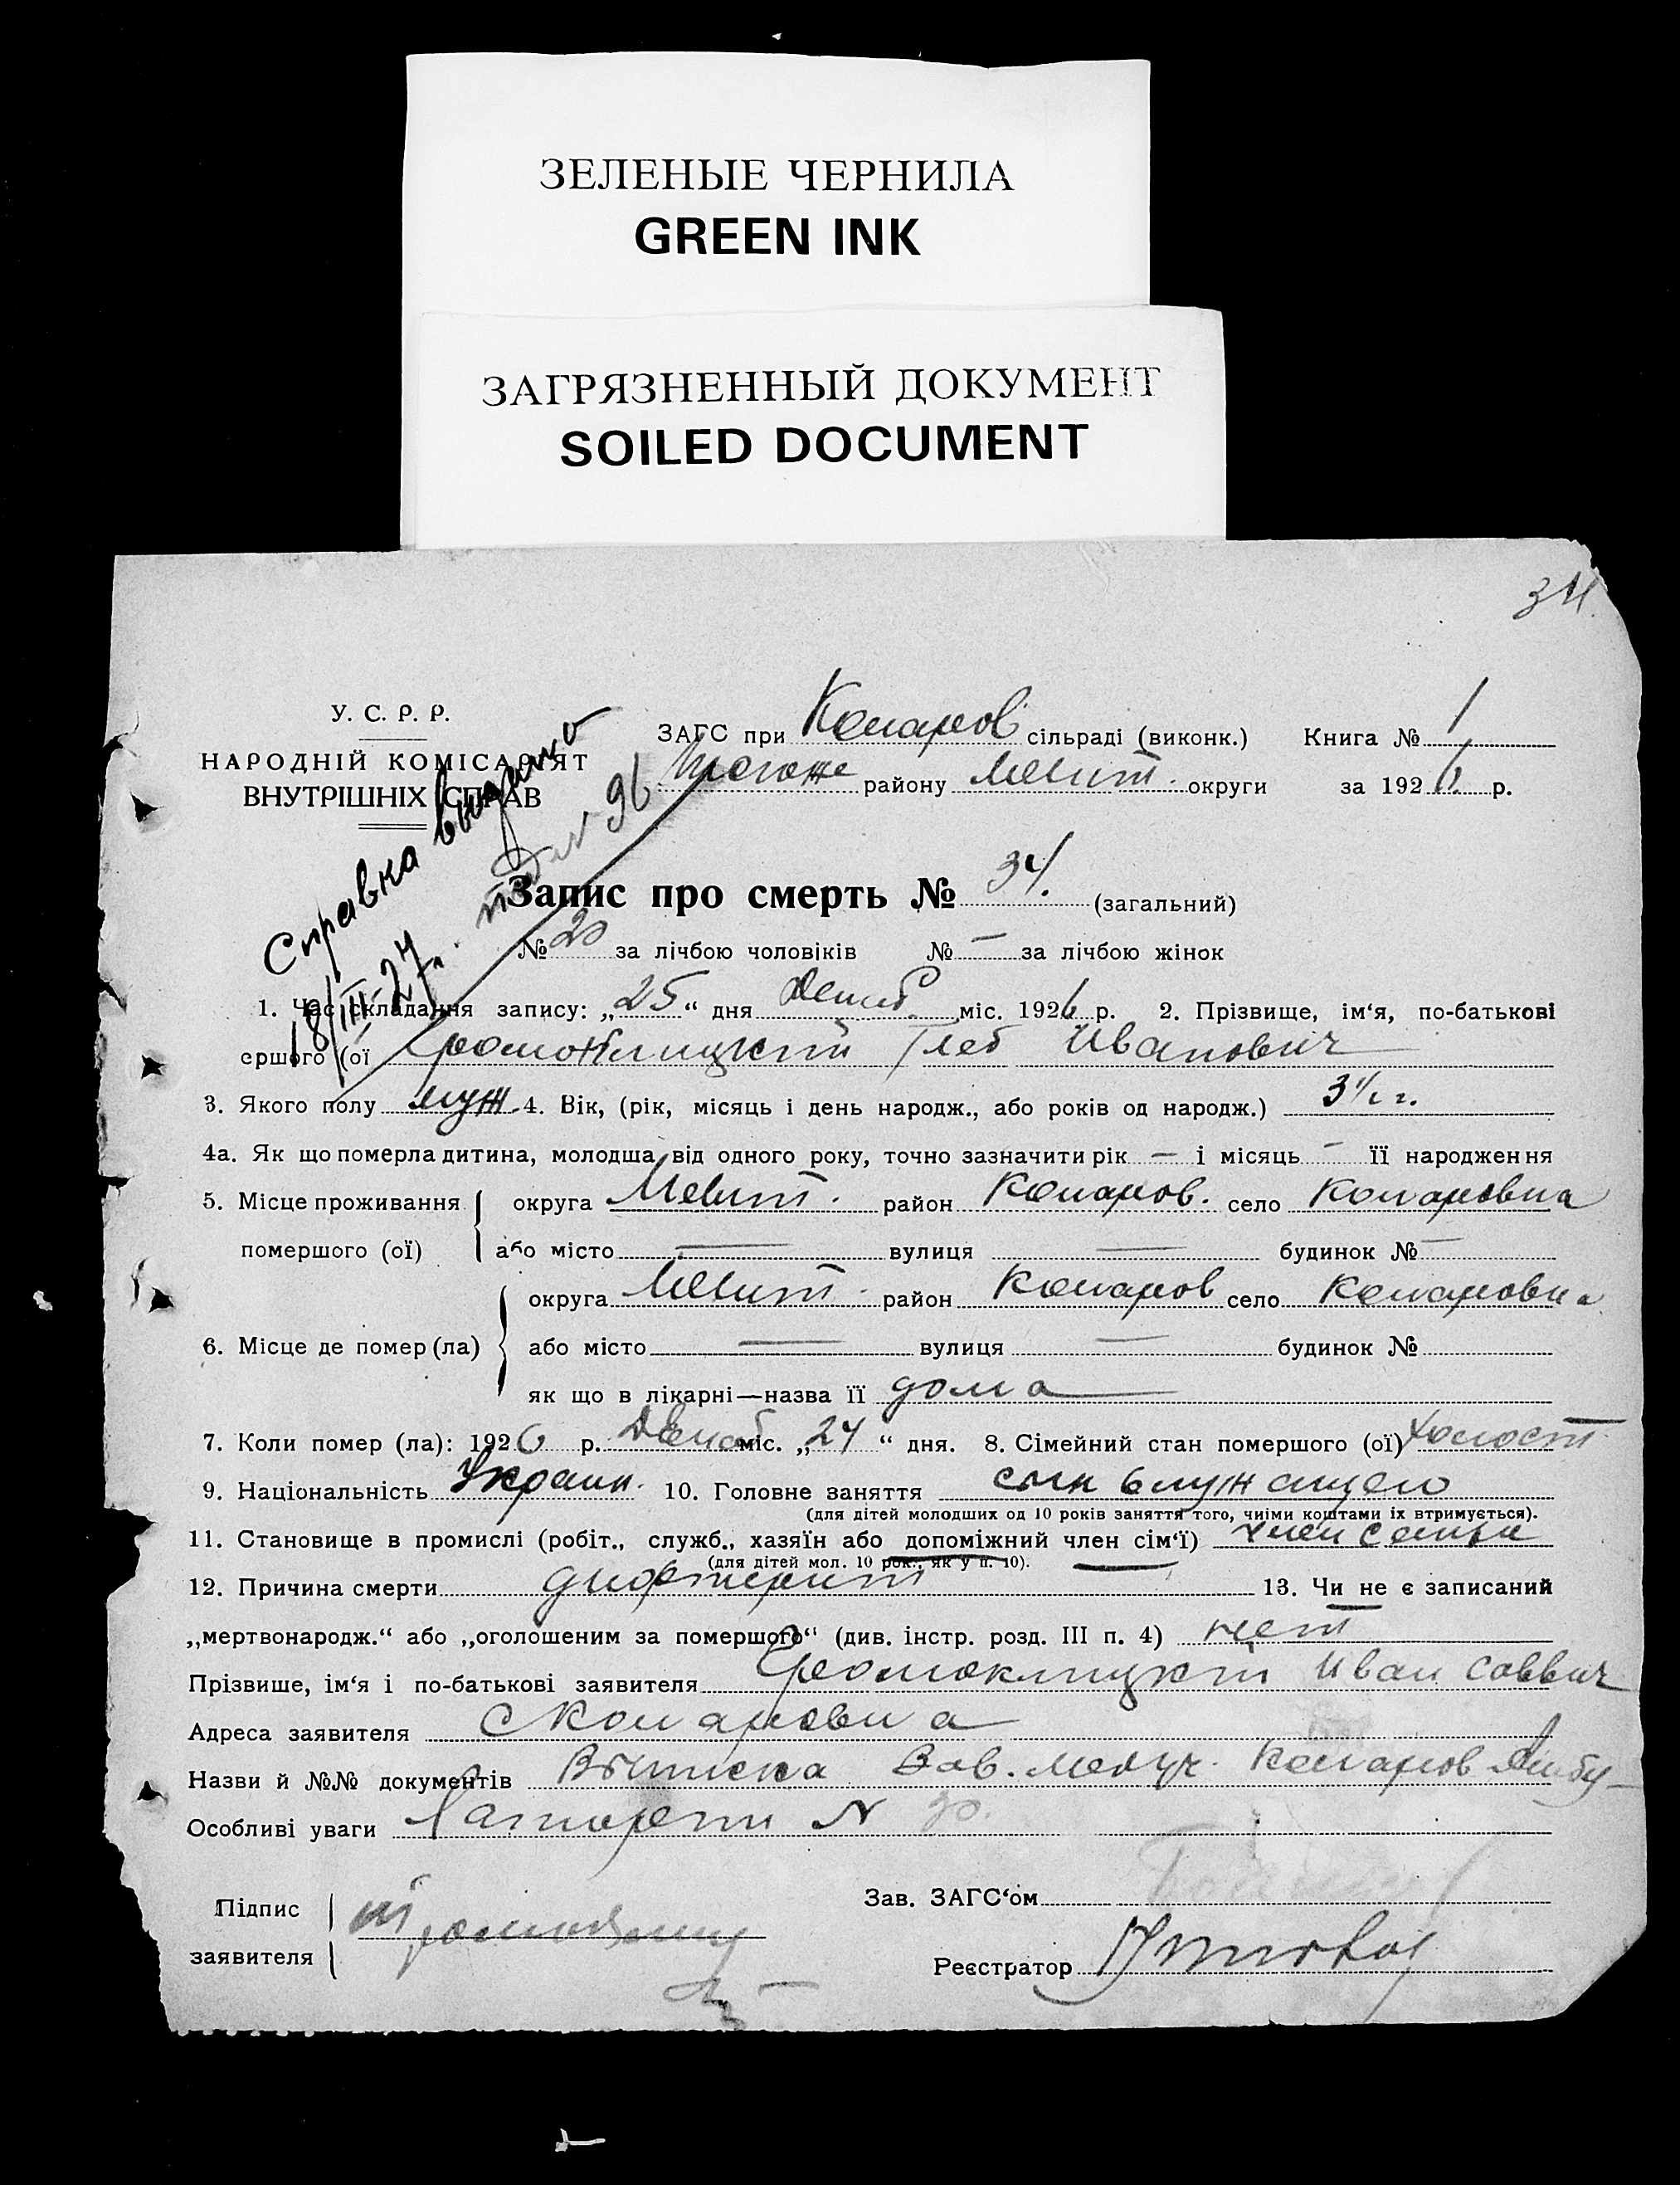 ЗЕЛЕНЫЕ ЧЕРНИЛА
GREEN INK
ЗАГРЯЗНЕННЫЙ ДОКУМЕНТ
SOILED DOCUMENT
34.
У. С. Р. Р.
НАРОДНІЙ КОМІСАРІЯТ
ВНУТРІШНІХ СПРАВ
Справка выдано
18/III-27 г. 96
ЗАГС при Комаров сільраді (виконк.) Книга № 1
Того же району Мелит. округи за 1926 р.
Запис про смерть № 34. (загальний)
№ 20 за лічбою чоловіків № — за лічбою жінок
1. Час складання запису: „25“ дня Декаб міс. 1926 р. 2. Прізвище, ім‘я, по-батькові
ершого (ої Громоклицкий Глеб Иванович
3. Якого полу муж 4. Вік, (рік, місяць і день народж., або років од народж.)
4а. Як що померла дитина, молодша від одного року, точно зазначити рік — і місяць — її народження
5. Місце проживання округа Мелит. район Комаров. село Комаровка
помершого (ої) або місто — вулиця — будинок № —
округа Мелит. район Комаров село Комаровка
6. Місце де помер (ла) або місто — вулиця — будинок №
як що в лікарні—назва її дома
7. Коли помер (ла): 1926 р. Декаб міс. „24“ дня. 8. Сімейний стан помершого (ої) холост
9. Національність Украин. 10. Головне заняття сын служащего
(для дітей молодших од 10 років заняття того, чиіми коштами іх втримується).
11. Становище в промислі (робіт., служб., хазяїн або допоміжний член сім‘ї) член семьи
(для дітей мол. 10 рок., як у п. 10).
12. Причина смерти дифтерит 13. Чи не є записаний
„мертвонародж.“ або „оголошеним за помершого“ (див. інстр. розд. III п. 4) нет
Прізвише, ім‘я і по-батькові заявителя Громоклицкий Иван Саввич
Адреса заявителя с Комаровка
Назви й №№ документів Выписка Зав. Комаров Амбу-
Особливі уваги латории N 30.
Підпис
заявителя
Зав. ЗАГС‘ом
Реєстратор